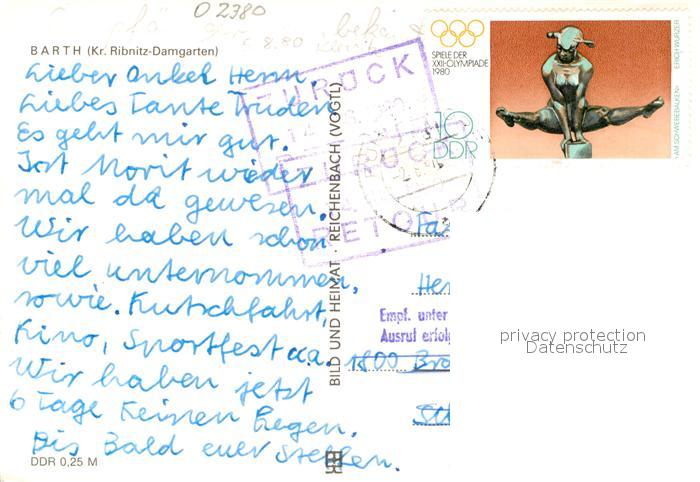 O 2380
BARTH (Kr. Ribnitz-Damgarten)
Lieber Onkel Herm.
Liebes Tante Truden
Es geht mir gut.
Ist Morit wieder
mal da gewesen.
Wir haben schon
viel unternommen,
sowie. Kutschfahrt,
Kino, Sportfest u.a.
Wir haben jetzt
6 Tage keinen Regen.
Bis Bald euer Steffen.
DDR 0,25 M
BILD UND HEIMAT · REICHENBACH (VOGTL)
ZURÜCK
ZURÜCK
RETOUR
SPIELE DER
XXII. OLYMPIADE
1980
10
DDR
ERICH WURZER
›AM SCHWEBEBALKEN‹
Fa
Her
Empf. unter
Ausruf erfolg
1800 Bra
privacy protection
Datenschutz